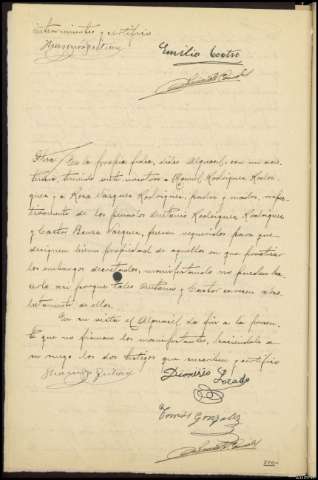 Emilio Castro
Otra / En la propia fecha, dicho Alguacil, con mi asis-
tencia, teniendo ante nosotros a Manuel Rodriguez Rodri-
guez y a Rosa Vazquez Rodriguez, padre y madre, respec-
tivamente de los penados Antonio Rodriguez Rodriguez
y Castor Vazquez, fueron requeridos para que
designen bienes propiedad de aquellos en que practicar
los embargos decretados, manifestando no pueden ha-
cerlo asi porque tales Antonio y Castor carecen abso-
lutamente de ellos.
En su vista el Alguacil da fin a la
que no firman los manifestantes, haciendolo a
su ruego los dos testigos que suscriben, certifico
Dionisio Dorado
Tomás Gonzalez